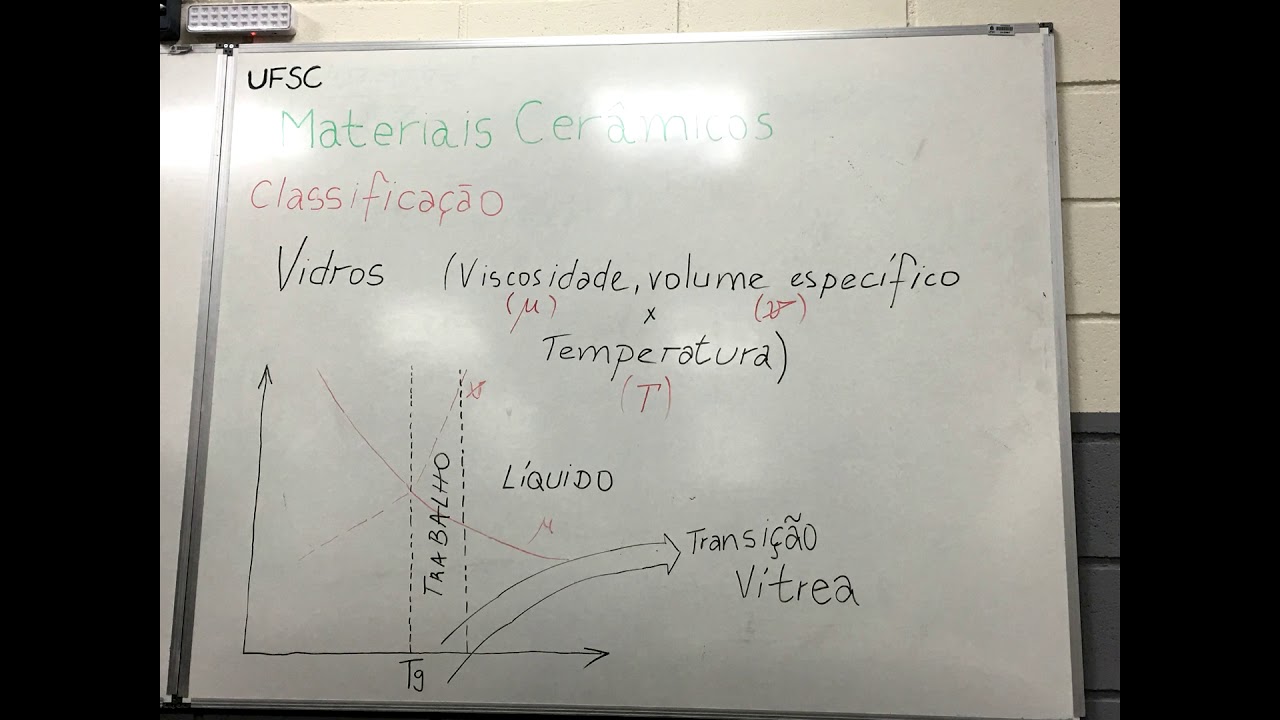 UFSC
Materiais Cerâmicos
Classificação
Vidros (Viscosidade, volume específico
(μ) x (v)
Temperatura)
(T)
v
TRABALHO
LÍQUIDO
μ
Transição
Vítrea
Tg